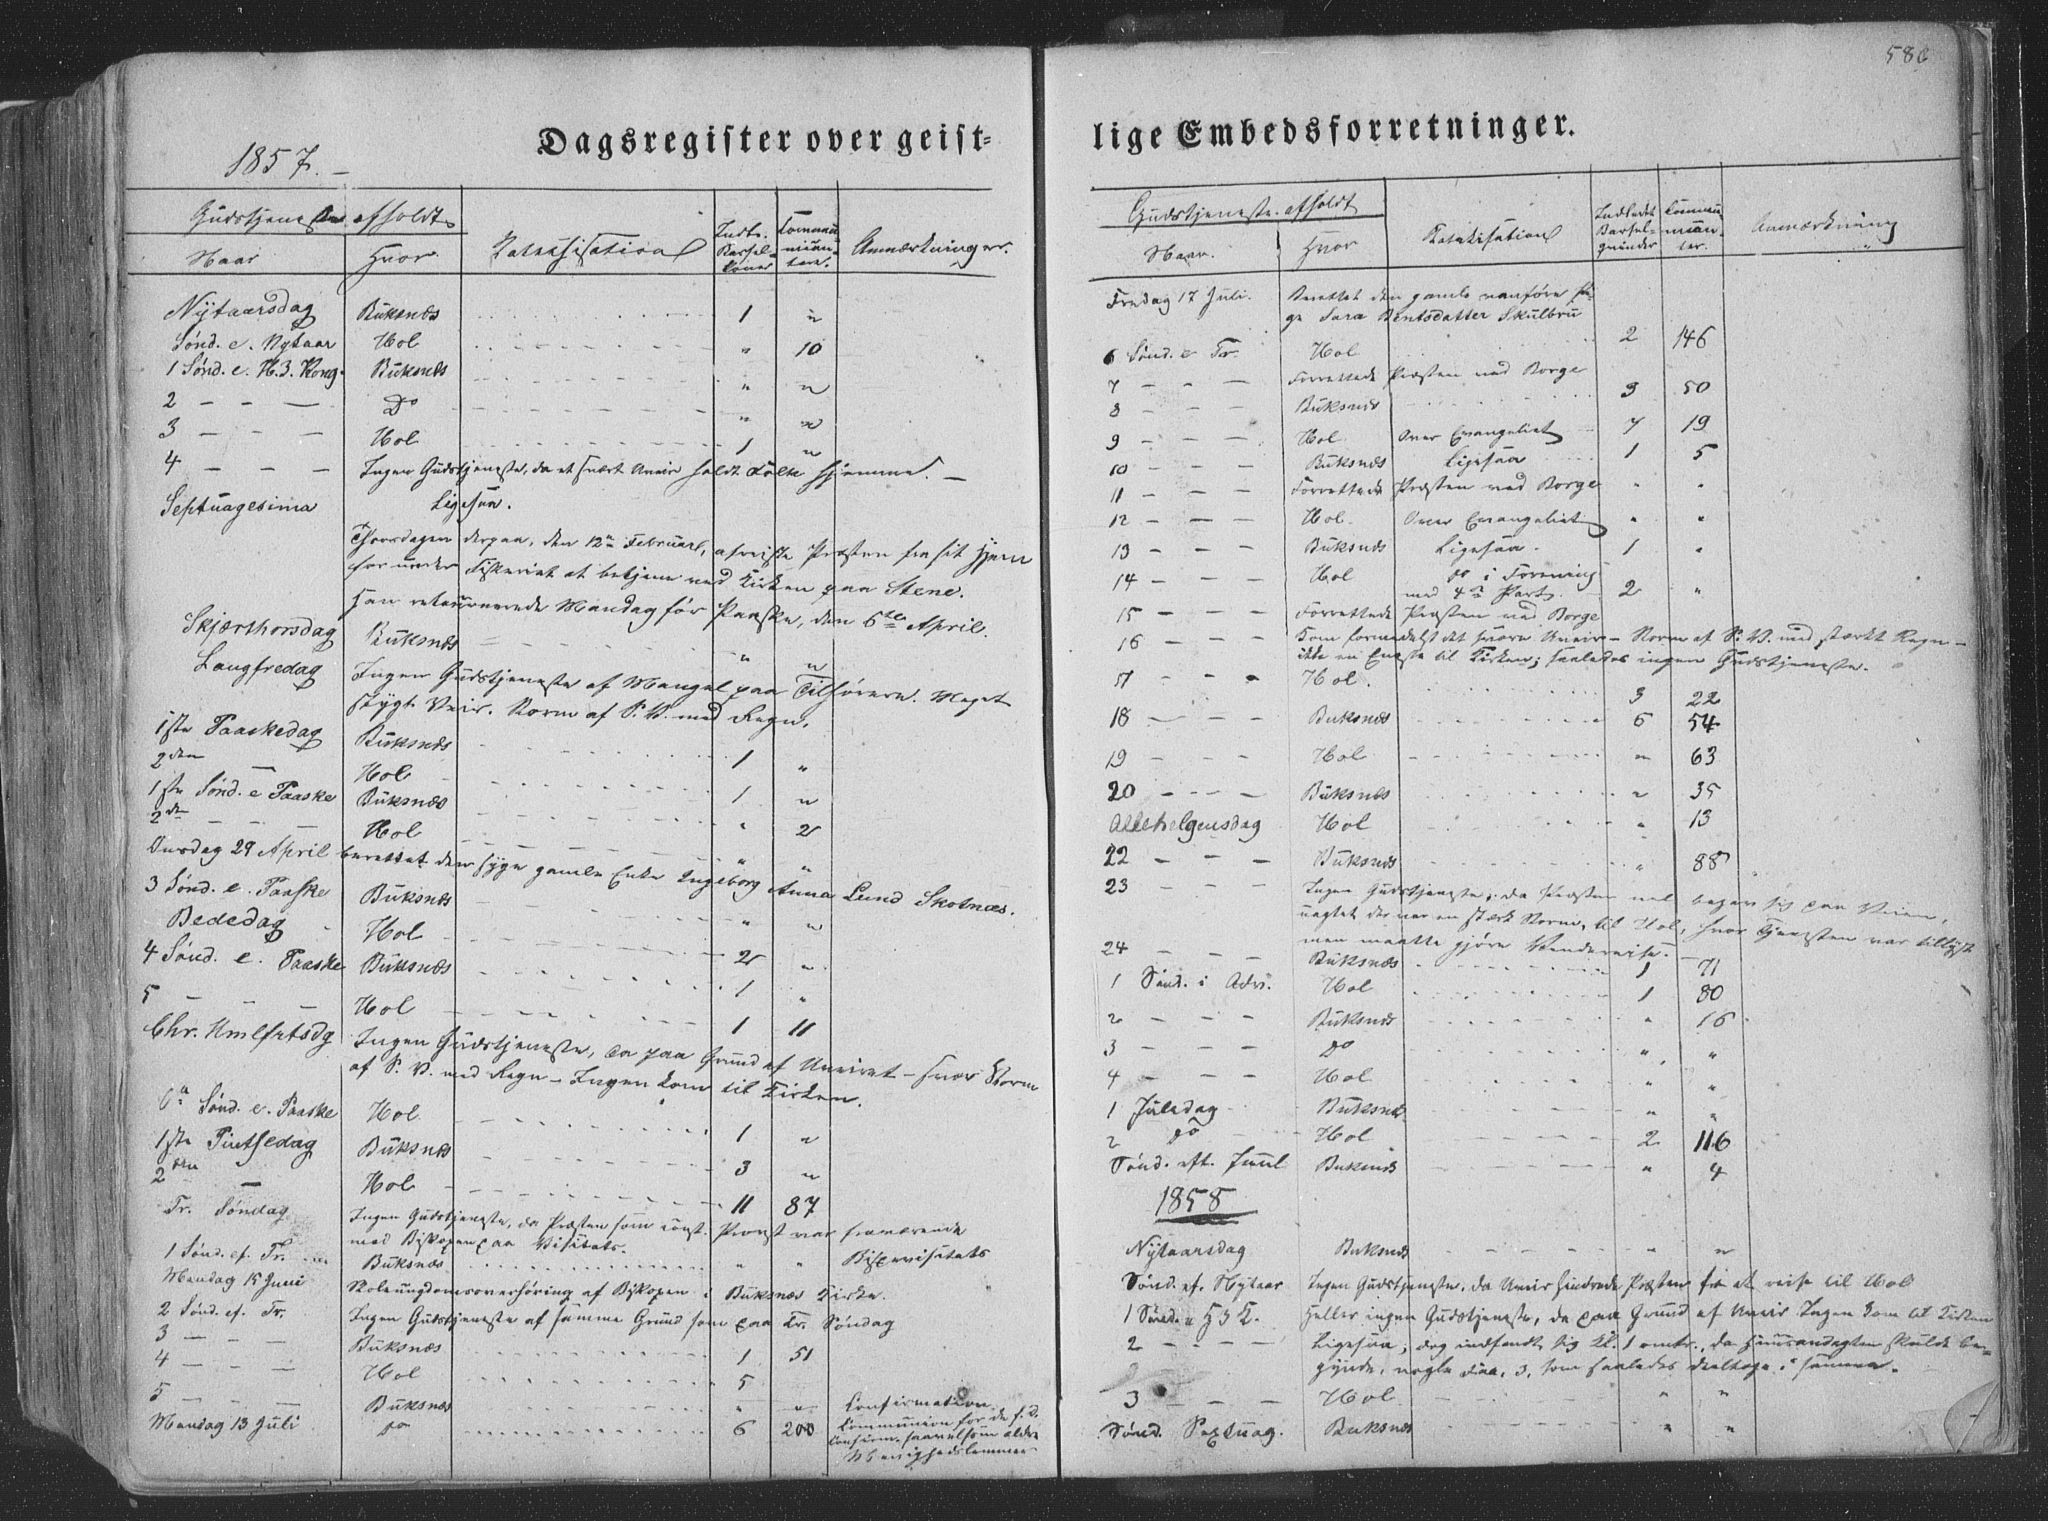 580
Dagsregister over geist-
1857.
Gudstjeneste afholdt
Naar
Hvor
Katekisation
Indl. Barsel-koner
Communi-canter.
Anmærkninger.
Nytaarsdag Buksnæs 1 "
Sønd. e. Nytaar Hol " 10
1 Sønd. e. H. 3. Kong. Buksnæs " "
2 — — — Do " "
3 — — — Hol 1 "
4 — — — Ingen Gudstjeneste, da et svært Uveir holdt Folk hjemme. —
Septuagesima Ligesaa.
Thorsdagen derpaa, den 12te Februar, afreiste Præsten fra sit Hjem
for under Fiskeriet at betjene ved Kirken paa Stene.
Han retournerede Mandag før Paaske, den 6te April.
Skjærthorsdag Buksnæs " "
Langfredag Ingen Gudstjeneste af Mangel paa Tilhørere. Meget
stygt Veir. Storm af S. V. med Regn.
1ste Paaskedag Buksnæs 1 "
2den — Hol 1 "
1ste Sønd. e Paaske Buksnæs " 2
2den — — Hol " "
Onsdag 29 April berettet den syge gamle Enke Ingeborg Anna Lund Skotnæs.
3 Sønd. e. Paaske Buksnæs " "
Bededag Hol 2 "
4 Sønd. e. Paaske Buksnæs 1 "
5 — Hol 1 11
Chr. Himlfrtsdg Ingen Gudstjeneste, da paa Grund af Uveiret – svær Storm
af S. V. med Regn – Ingen kom til Kirken.
6te Sønd. e. Paaske Hol 1 "
1ste Pintsedag Buksnæs 3 "
2den — Hol 11 87
Tr. Søndag Ingen Gudstjeneste, da Præsten som const. Provst var fraværende
med Biskopen paa Visitats.
1 Sønd. ef. Tr. Buksnæs " " Bispevisitats
Mandag 15 Juni Skoleungdomsoverhøring af Biskopen i Buksnæs Kirke.
2 Sønd. ef. Tr. Ingen Gudstjeneste af samme Grund som paa Tr. Søndag
3 — — Buksnæs 1 51
4 — — Hol 5
5 — — Buksnæs " " Confirmation
Mandag 13 Juli do 6 200 Communion for de f. D.
Confirm. saavelsom ældre
Menighedslemmer
lige Embedsforretninger.
Gudstjeneste afholdt
Naar.
Hvor
Katekisation
Indledet Barsel-qvinder
Commu-nican-ter.
Anmærkning
Fredag 17 Juli. Berettet den gamle vanføre Pi-
ge Sara Bentsdatter Skulbru
6 Sønd. e Tr. Hol 2 146
7 — — — Forrettede Præsten ved Borge
8 — — — Buksnæs 3 50
9 — — — Hol. Over Evangeliet 7 19
10 — — — Buksnæs Ligesaa 1 5
11 — — — Forrettede Præsten ved Borge " "
12 — — — Hol. Over Evangeliet " "
13 — — — Buksnæs Ligesaa. 1 "
14 — — — Hol do i Forening
med 4de Part. 2 "
15 — — — Forrettede Præsten ved Borge
16 — — — Kom formedelst det svære Uveir – Storm af S. V. med stærkt Regn –
ikke en Eneste til Kirken; saaledes ingen Gudstjeneste.
17 — — — Hol. 3 22
18 — — — Buksnæs 6 54
19 — — — Hol " 63
20 — — — Buksnæs " 35
Allehelgensdag Hol " 13
22 — — — Buksnæs " 88
23 — — — Ingen Gudstjeneste; da Præsten vel begav sig paa Veien,
uagtet der var en stærk Storm, til Hol, hvor Tjenesten var tillyst
men maatte gjøre Vendereise. —
24 — — — Buksnæs 1 71
1 Sønd. i Adv. Hol 1 80
2 — — — Buksnæs " 16
3 — — — Do " "
4 — — — Hol " "
1 Juledag Buksnæs " "
2 do Hol 2 116
Sønd. eft. Juul Buksnæs " 4
1858
Nytaarsdag Buksnæs " "
Sønd. ef. Nytaar Ingen Gudstjeneste, da Uveir hindrede Præsten fra at reise til Hol
1 Sønd. e H 3 K. Heller ingen Gudstjeneste, da paa Grund af Uveir Ingen kom til Kirken
2 — — — Ligesaa; dog indfandt sig Kl. 1 omtr., da Huusandagten skulde be-
gynde, nogle Faa, 3, som saaledes deeltoge i samme.
3 — — — Hol " "
Sønd. Septuag. Buksnæs " "